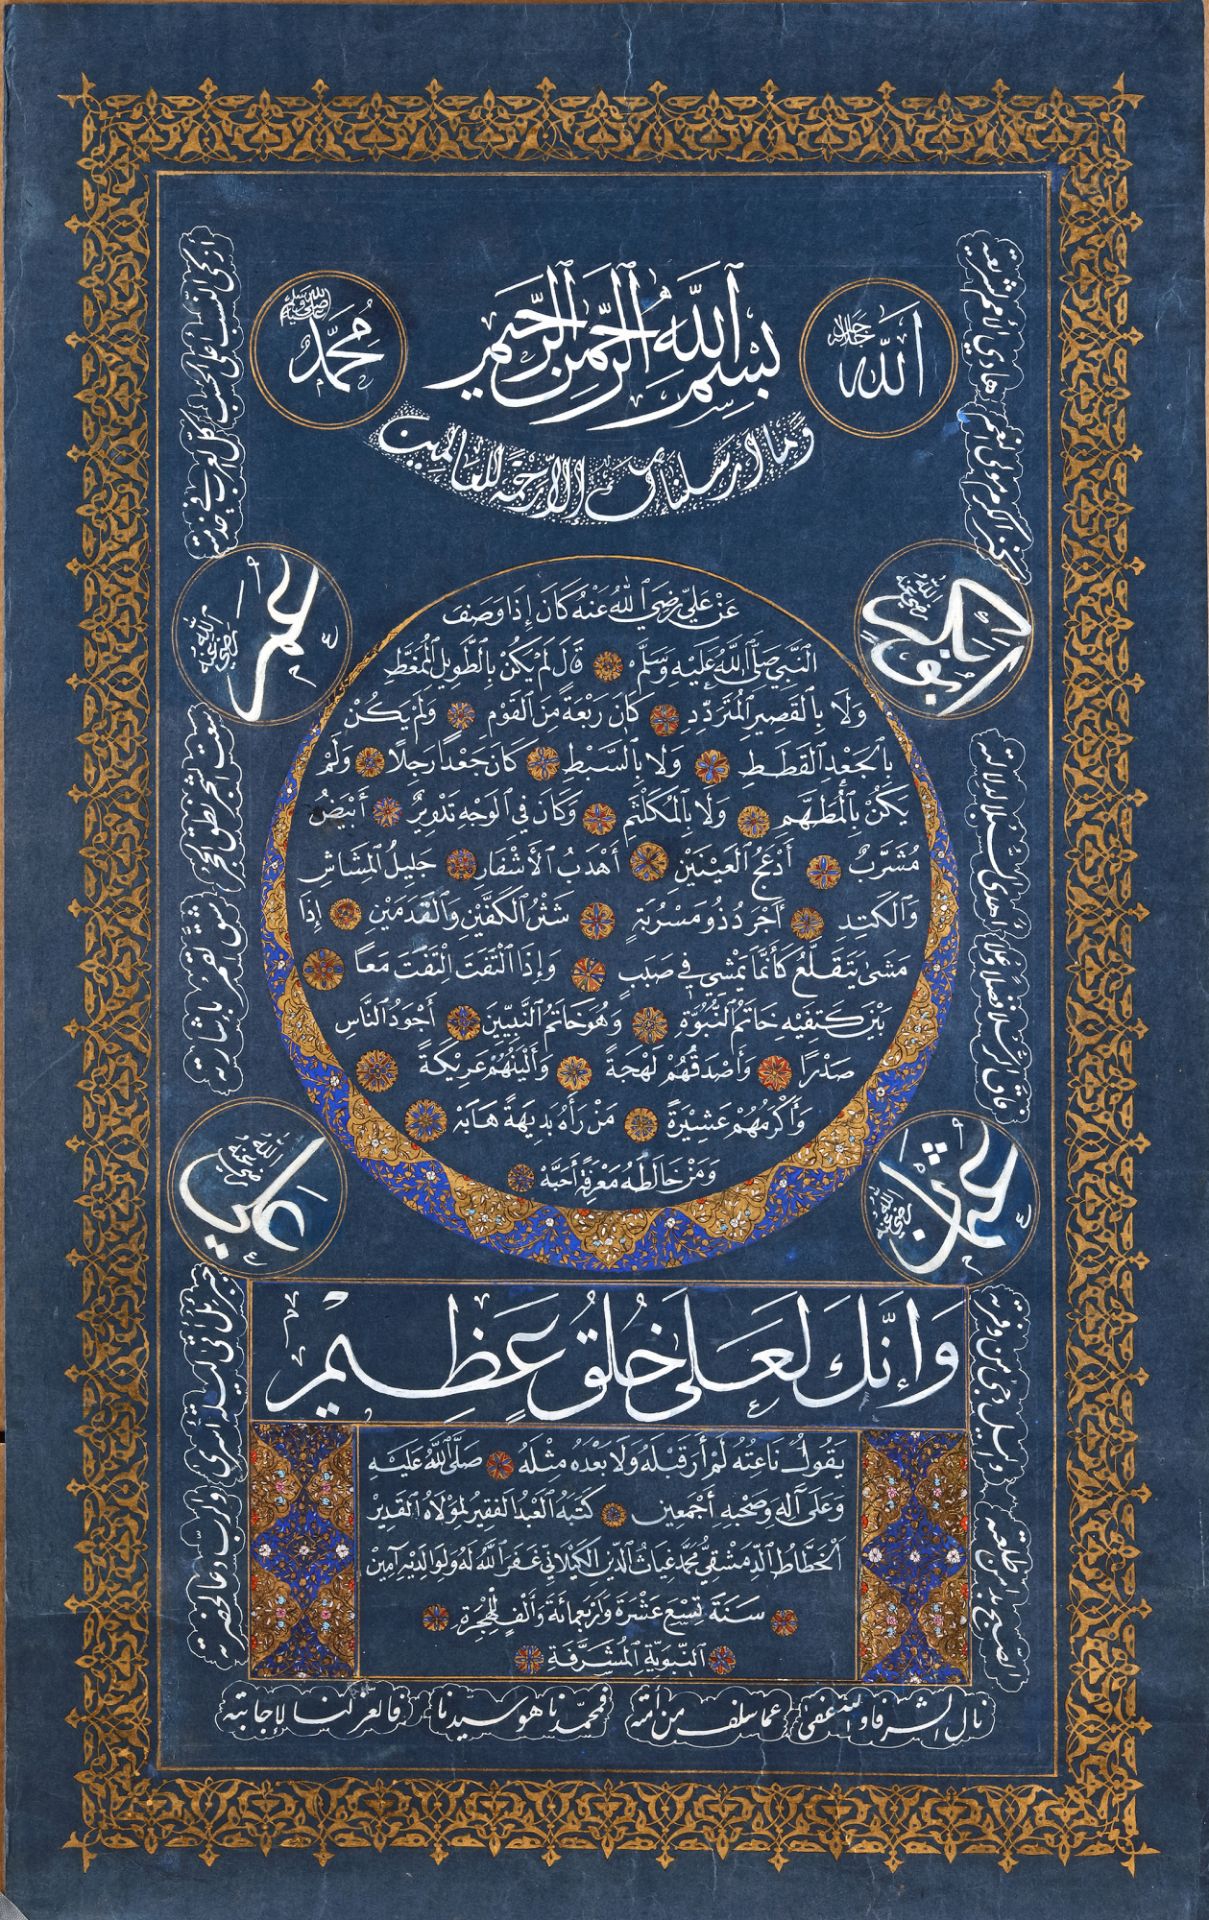 بِسْمِ ٱللَّهِ ٱلرَّحْمَٰنِ ٱلرَّحِيمِ
ٱللَّه جل جلاله
مُحَمَّد صلى الله عليه وسلم
وَمَا أَرْسَلْنَاكَ إِلَّا رَحْمَةً لِلْعَالَمِينَ
أبو بكر رضي الله عنه
عمر رضي الله عنه
عثمان رضي الله عنه
علي رضي الله عنه
عَنْ عَلِيٍّ رَضِيَ ٱللَّهُ عَنْهُ كَانَ إِذَا وَصَفَ
النَّبِيَّ صَلَّى ٱللَّهُ عَلَيْهِ وَسَلَّمَ قَالَ لَمْ يَكُنْ بِالطَّوِيلِ الْمُمَّغِطِ
وَلَا بِالْقَصِيرِ الْمُتَرَدِّدِ كَانَ رَبْعَةً مِنَ الْقَوْمِ وَلَمْ يَكُنْ
بِالْجَعْدِ الْقَطَطِ وَلَا بِالسَّبْطِ كَانَ جَعْدًا رَجِلًا وَلَمْ
يَكُنْ بِالْمُطَهَّمِ وَلَا بِالْمُكَلْثَمِ وَكَانَ فِي الْوَجْهِ تَدْوِيرٌ أَبْيَضُ
مُشَرَّبٌ أَدْعَجُ الْعَيْنَيْنِ أَهْدَبُ الْأَشْفَارِ جَلِيلُ الْمُشَاشِ
وَالْكَتَدِ أَجْرَدُ ذُو مَسْرُبَةٍ شَثْنُ الْكَفَّيْنِ وَالْقَدَمَيْنِ إِذَا
مَشَى يَتَقَلَّعُ كَأَنَّمَا يَمْشِي فِي صَبَبٍ وَإِذَا الْتَفَتَ الْتَفَتَ مَعًا
بَيْنَ كَتِفَيْهِ خَاتَمُ النُّبُوَّةِ وَهُوَ خَاتَمُ النَّبِيِّينَ أَجْوَدُ النَّاسِ
صَدْرًا وَأَصْدَقُهُمْ لَهْجَةً وَأَلْيَنُهُمْ عَرِيكَةً
وَأَكْرَمُهُمْ عَشِيرَةً مَنْ رَآهُ بَدِيهَةً هَابَهُ
وَمَنْ خَالَطَهُ مَعْرِفَةً أَحَبَّهُ
وَإِنَّكَ لَعَلَىٰ خُلُقٍ عَظِيمٍ
يَقُولُ نَاعِتُهُ لَمْ أَرَ قَبْلَهُ وَلَا بَعْدَهُ مِثْلَهُ صَلَّى ٱللَّهُ عَلَيْهِ
وَعَلَى آلِهِ وَصَحْبِهِ أَجْمَعِينَ كَتَبَهُ الْعَبْدُ الْفَقِيرُ لِمَوْلَاهُ الْقَدِيرِ
الْخَطَّاطُ الدِّمَشْقِيُّ مُحَمَّد غِيَاثُ الدِّينِ الْكَيْلَانِي غَفَرَ ٱللَّهُ لَهُ وَلِوَالِدَيْهِ آمِينَ
سَنَةَ تِسْعَ عَشْرَةَ وَأَرْبَعِمِائَةٍ وَأَلْفٍ لِلْهِجْرَةِ
النَّبَوِيَّةِ الْمُشَرَّفَةِ
كنز الكرم مولى النعم هادي الأمم لشريعته
أزكى النسب أعلى الحسب كل العرب في خدمته
سعت الشجر نطق الحجر شق القمر بإشارته
جبريل أتى ليلة أسرى والرب دعا لحضرته
نال الشرفا والله عفى عما سلف من أمته
فمحمدنا هو سيدنا فالعز لنا لإجابته